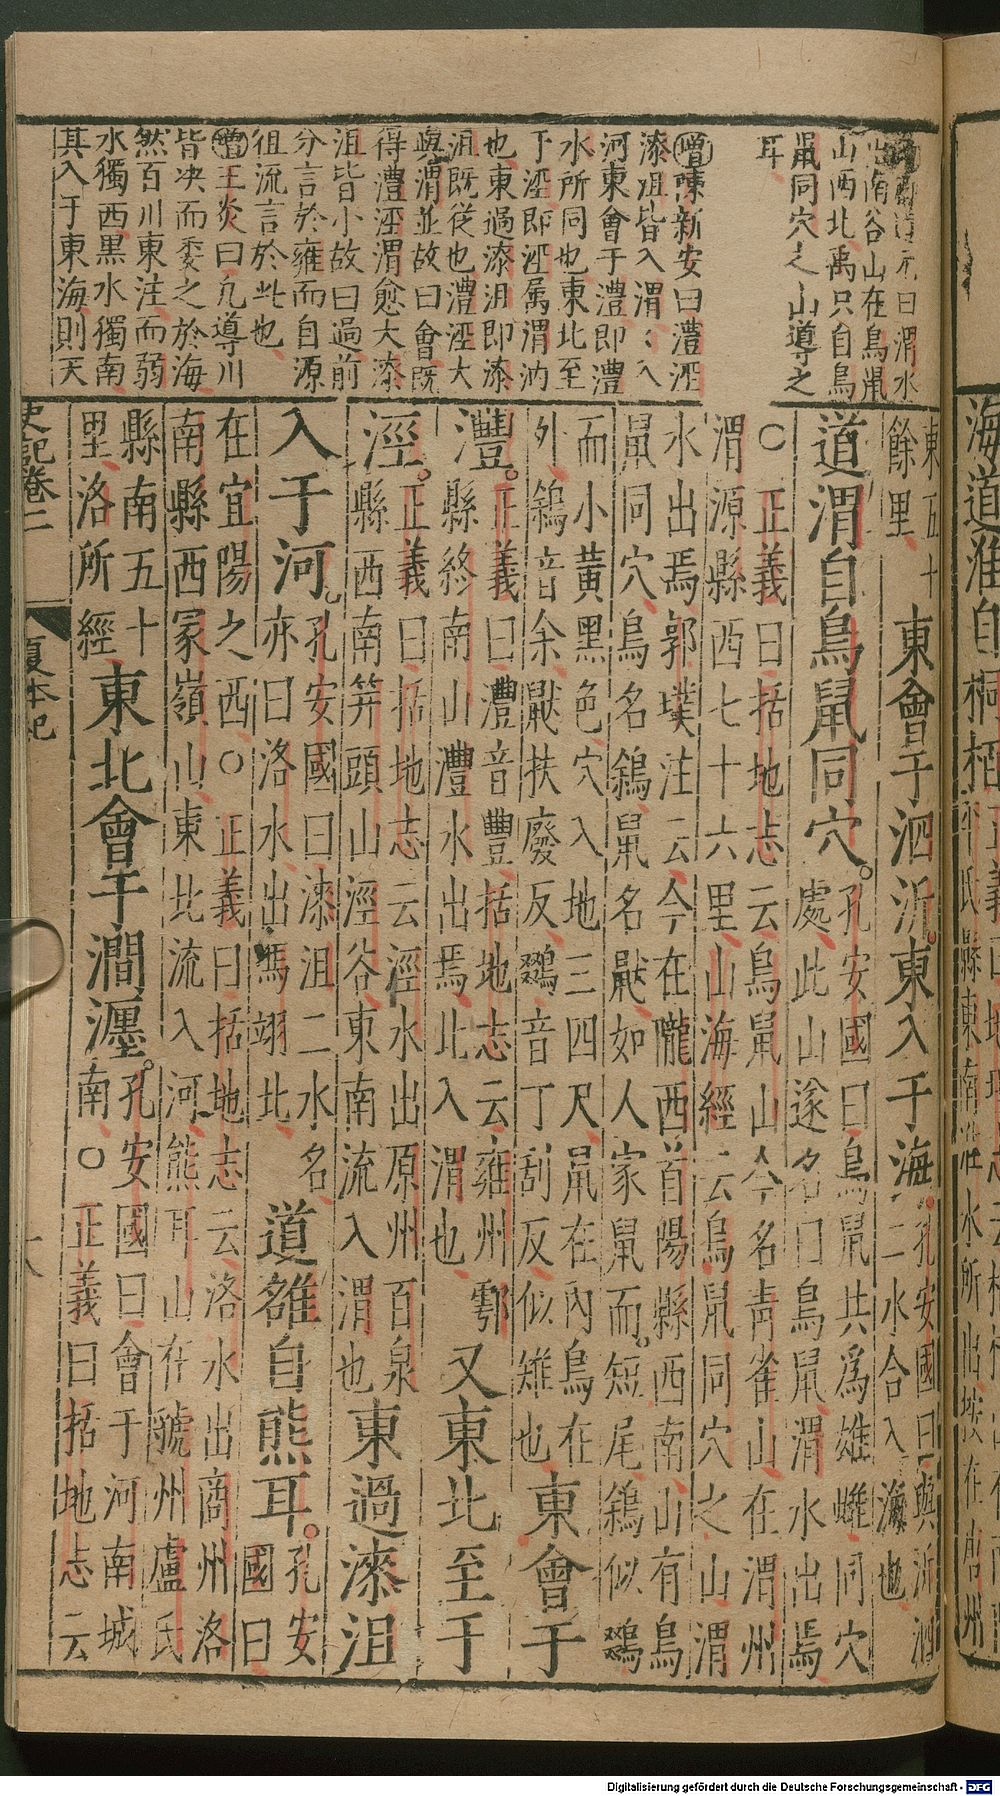 海道淮自桐柏
元曰渭水
出南谷山在鳥鼠
山西北禹只自鳥
鼠同穴之山導之
耳
增陳新安曰澧涇
漆沮皆入渭渭入
河東會于澧即澧
水所同也東北至
于涇即涇属渭汭
也東過漆沮即漆
沮既從也澧涇大
與渭並故曰會既
得澧涇渭愈大漆
沮皆小故曰過前
分言於雍而自源
徂流言於此也
增王炎曰凡導川
皆决而委之於海
然百川東注而弱
水獨西黑水獨南
其入于東海則天
東五十餘里東會于泗沂東入于海孔安國曰與沂泗二水合入海也
道渭自鳥鼠同穴孔安國曰鳥鼠共為雄雌同穴處此山遂名曰鳥鼠渭水出焉
○正義曰括地志云鳥鼠山今名青雀山在渭州渭源縣西七十六里山海經云鳥鼠同穴之山渭
水出焉郭璞注云今在隴西首陽縣西南山有鳥鼠同穴鳥名鵌鼠名鼵如人家鼠而短尾鵌似鵽
而小黃黑色穴入地三四尺鼠在內鳥在外鵌音余鼵扶廢反鵽音丁刮反似雉也東會于
灃正義曰灃音豐括地志云雍州鄠縣終南山灃水出焉北入渭也又東北至于
涇正義曰括地志云涇水出原州百泉縣西南笄頭山涇谷東南流入渭也東過漆沮
入于河孔安國曰漆沮二水名亦曰洛水出馮翊北道雒自熊耳孔安國曰
在宜陽之西○正義曰括地志云洛水出商州洛南縣西冢嶺山東北流入河熊耳山在虢州盧氏
縣南五十里洛所經東北會于澗瀍孔安國曰會于河南城南○正義曰括地志云
史記卷二 夏本紀
Digitalisierung gefördert durch die Deutsche Forschungsgemeinschaft - DFG